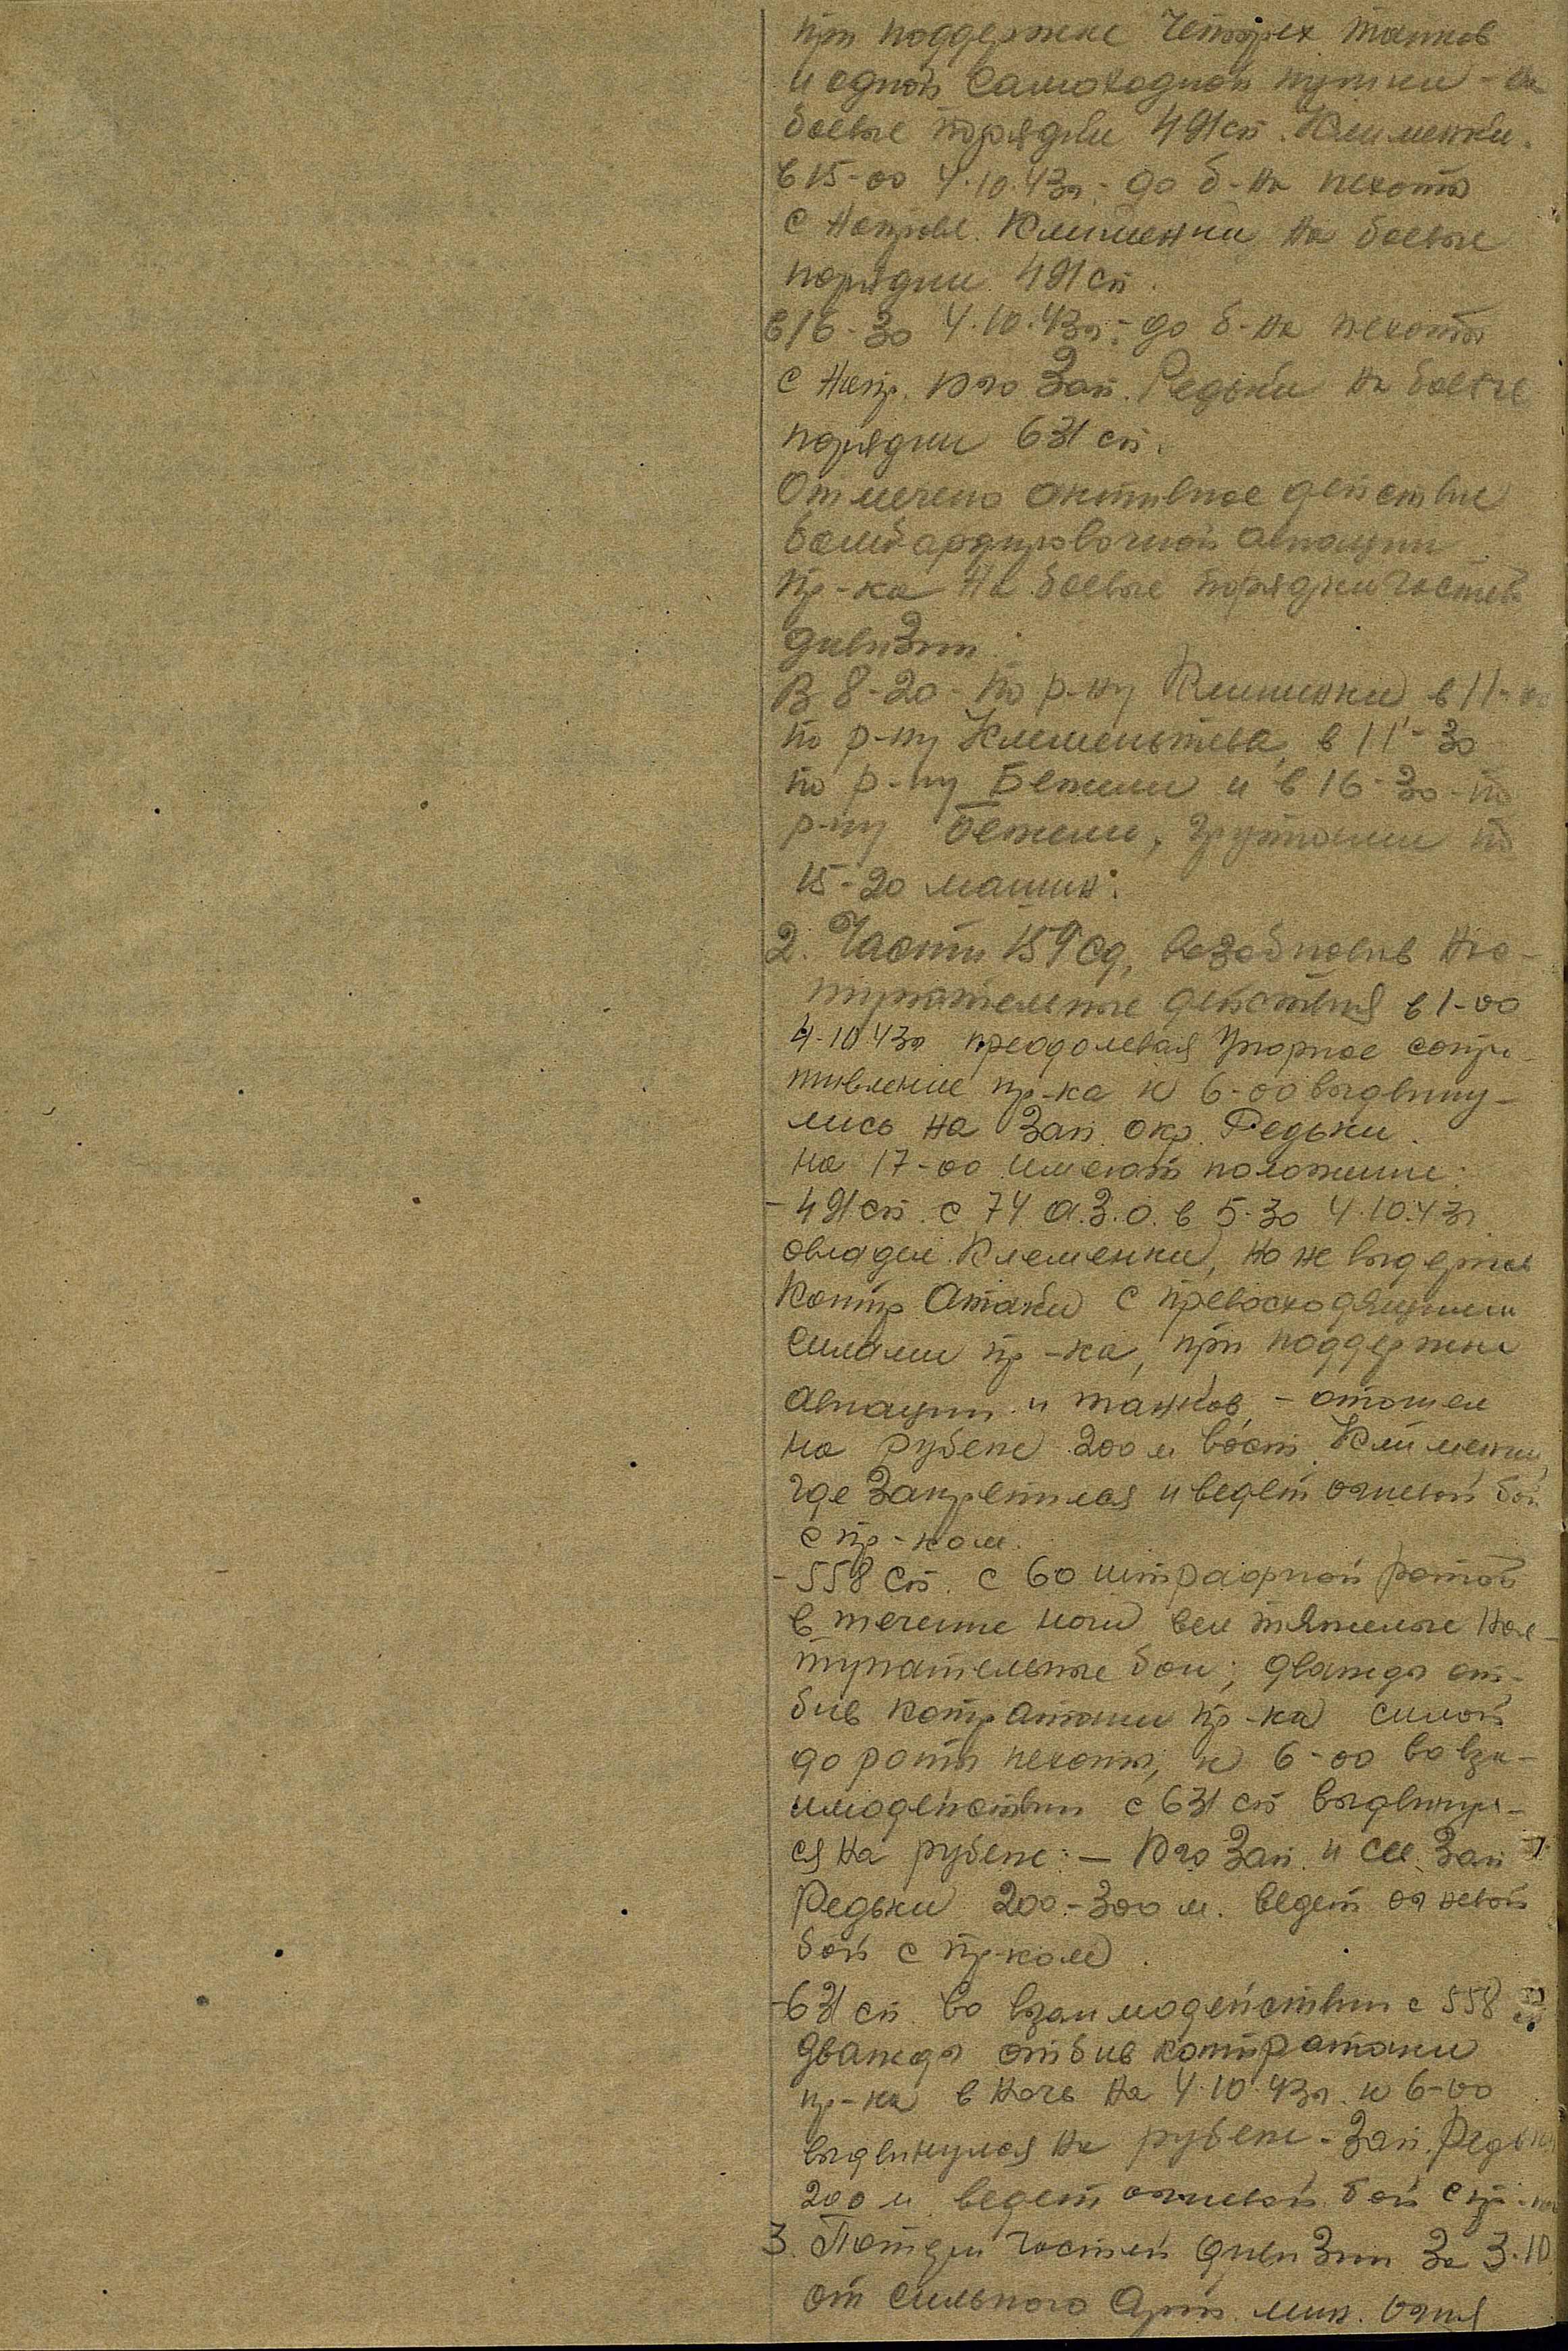 при поддержке четырех танков
и одной самоходной пушки – на
боевые порядки 491 сп. Клименки.
в 15-00 4.10.43г. – до б-на пехоты
с направл. Клименки на боевые
порядки 491 сп.
в 16-30 4.10.43г. – до б-на пехоты
с напр. юго зап. Редьки на боевые
порядки 631 сп.
Отмечено активное действие
бомбардировочной авиации
пр-ка на боевые порядки частей
дивизии:
В 8-20 – по р-ну Клименки в 11-00
по р-ну Клеменьтева, в 11-30
по р-ну Бежили и в 16-30 – по
р-ну Бежили, группами по
15-20 машин.
2. Части 159 сд, возобновив нас-
тупательные действия в 1-00
4.10.43г преодолевая упорное сопро-
тивление пр-ка к 6-00 выдвину-
лись на зап. окр. Редьки.
на 17-00 имеют положение:
– 491 сп. с 74 а.з.о. в 5-30 4.10.43г
овладел Клеменки, но не выдержав
контр атаки с превосходящими
силами пр-ка, при поддержки
авиации и танков, – отошел
на рубеже 200 м вост. Клименки,
где закрепился и ведет огневой бой
с пр-ком.
– 558 сп. с 60 штрафной ротой
в течение ночи вел тяжелые нас-
тупательные бои; дважды от-
бив контратаки пр-ка силой
до роты пехоты, к 6-00 во вза-
имодействии с 631 сп выдвинул-
ся на рубеже: – юго зап. и сев. зап.
Редьки 200-300 м. ведет огневой
бой с пр-ком.
– 631 сп. во взаимодействии с 558 сп
дважды отбив контратаки
пр-ка в ночь на 4.10.43г. к 6-00
выдвинулся на рубеже – зап. Редьки
200 м ведет огневой бой с пр-ком
3. Потери частей дивизии за 3.10
от сильного арт. мин. огня